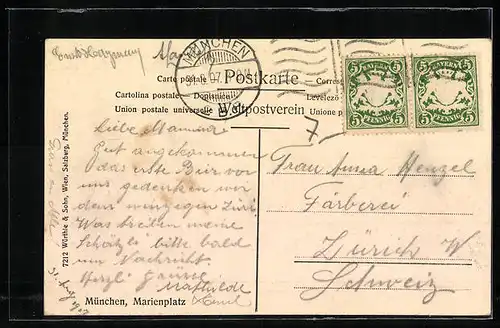 MÜNCHEN
07
Carte postale
Postkarte
Cartolina postale.
Levelező
Union postale universelle
Weltpostverein
Union p
BAYERN
5 5
PFENNIG
BAYERN
5 5
PFENNIG
7
Liebe Mamma
Gut angekommen
das erste Bier vor
uns gedenken wir
dem winzigen Züri
Was treiben meine
Schätzli bitte bald
um Nachricht
Herzl Grüsse
Mathilde
Frau Anna Henzel
Färberei
Zürich IV
Schweiz
7212 Würthle & Sohn, Wien, Salzburg, München.
München, Marienplatz